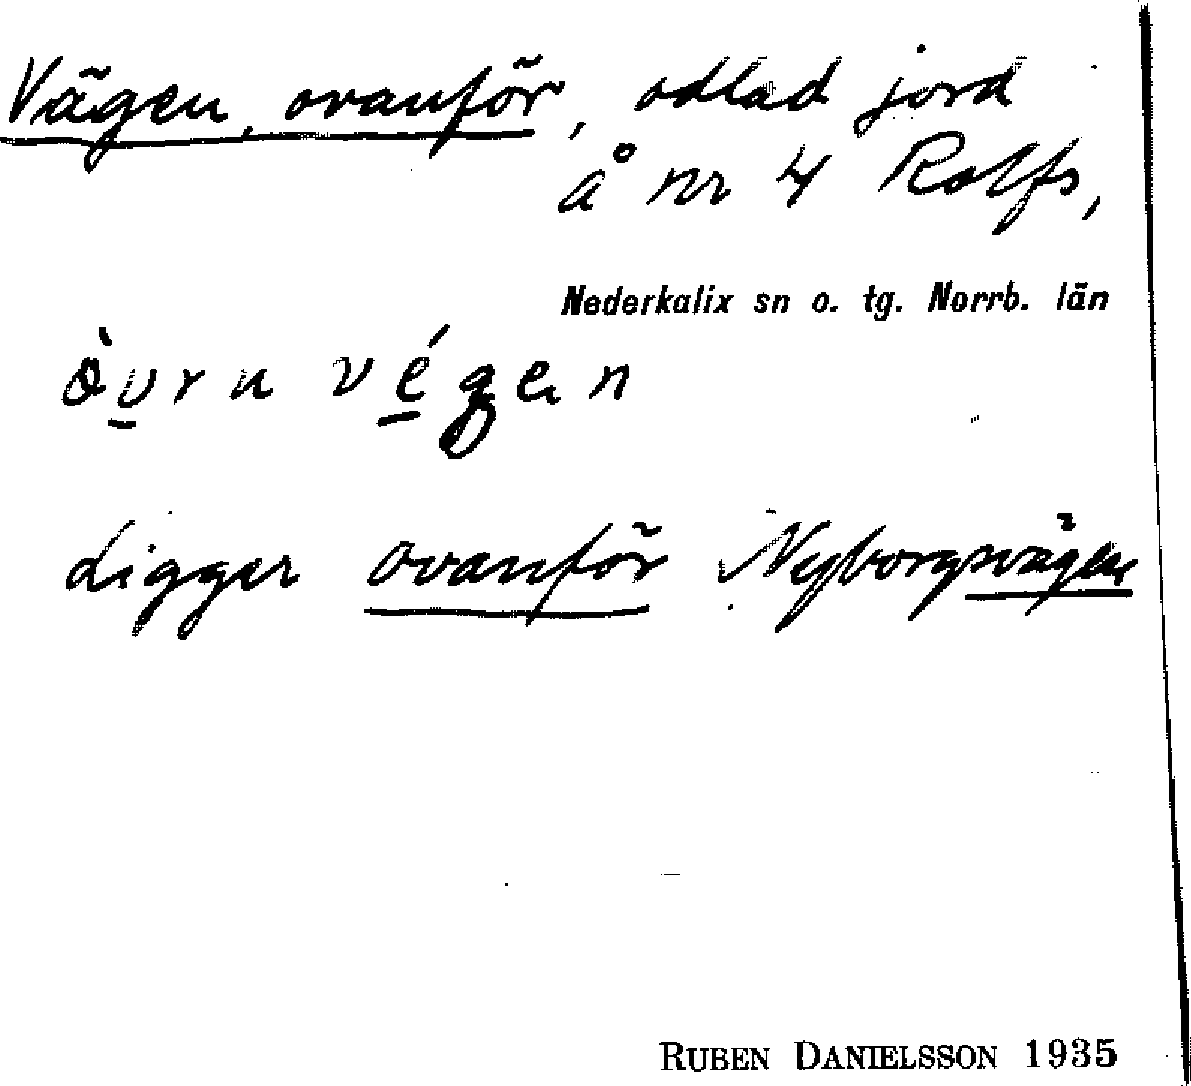 Vägen, ovanför, odlad jord
å nr 4 Rolfs,
Nederkalix sn o. tg. Norrb. län
végen
ligger ovanför Nyborgsvägen
RUBEN DANIELSSON 1935